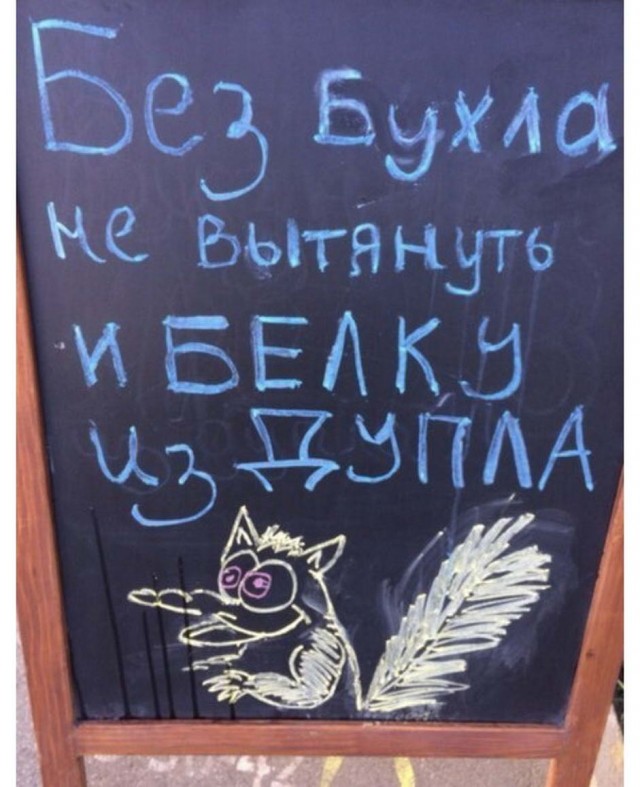 Без Бухла
не вытянуть
и БЕЛКУ
из ДУПЛА